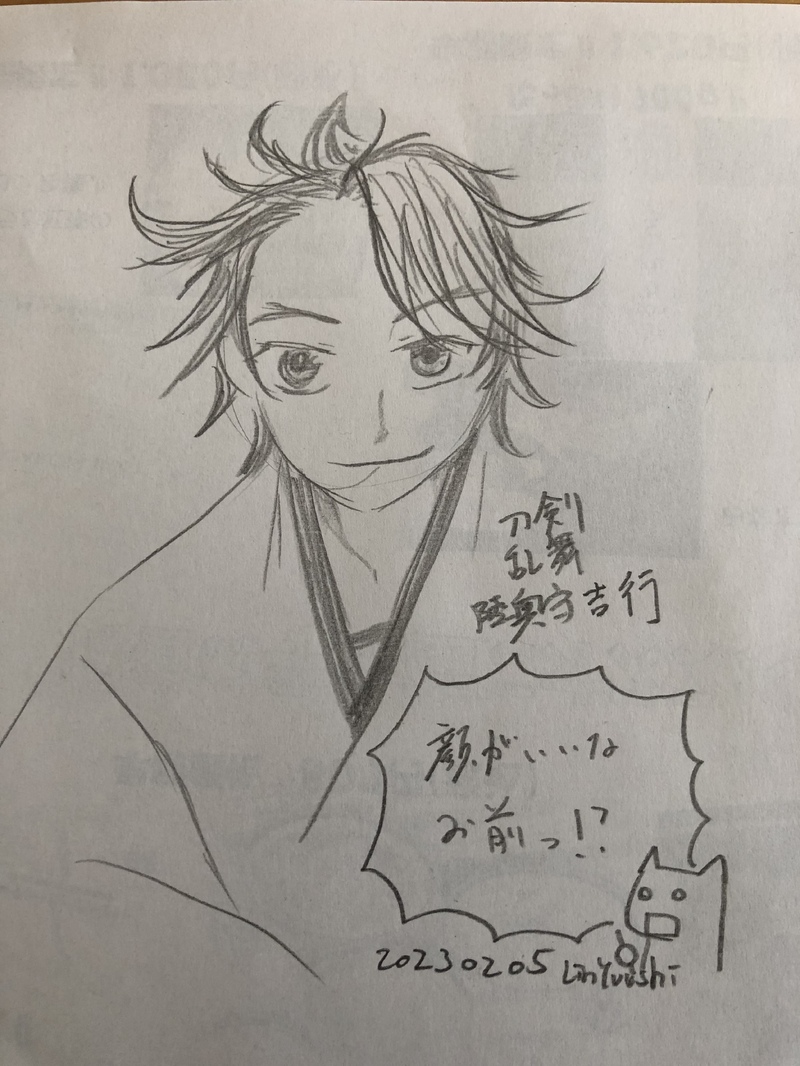 刀剣
乱舞
陸奥守吉行
顔がいいな
お前っ!?
20230205 LinYuushi